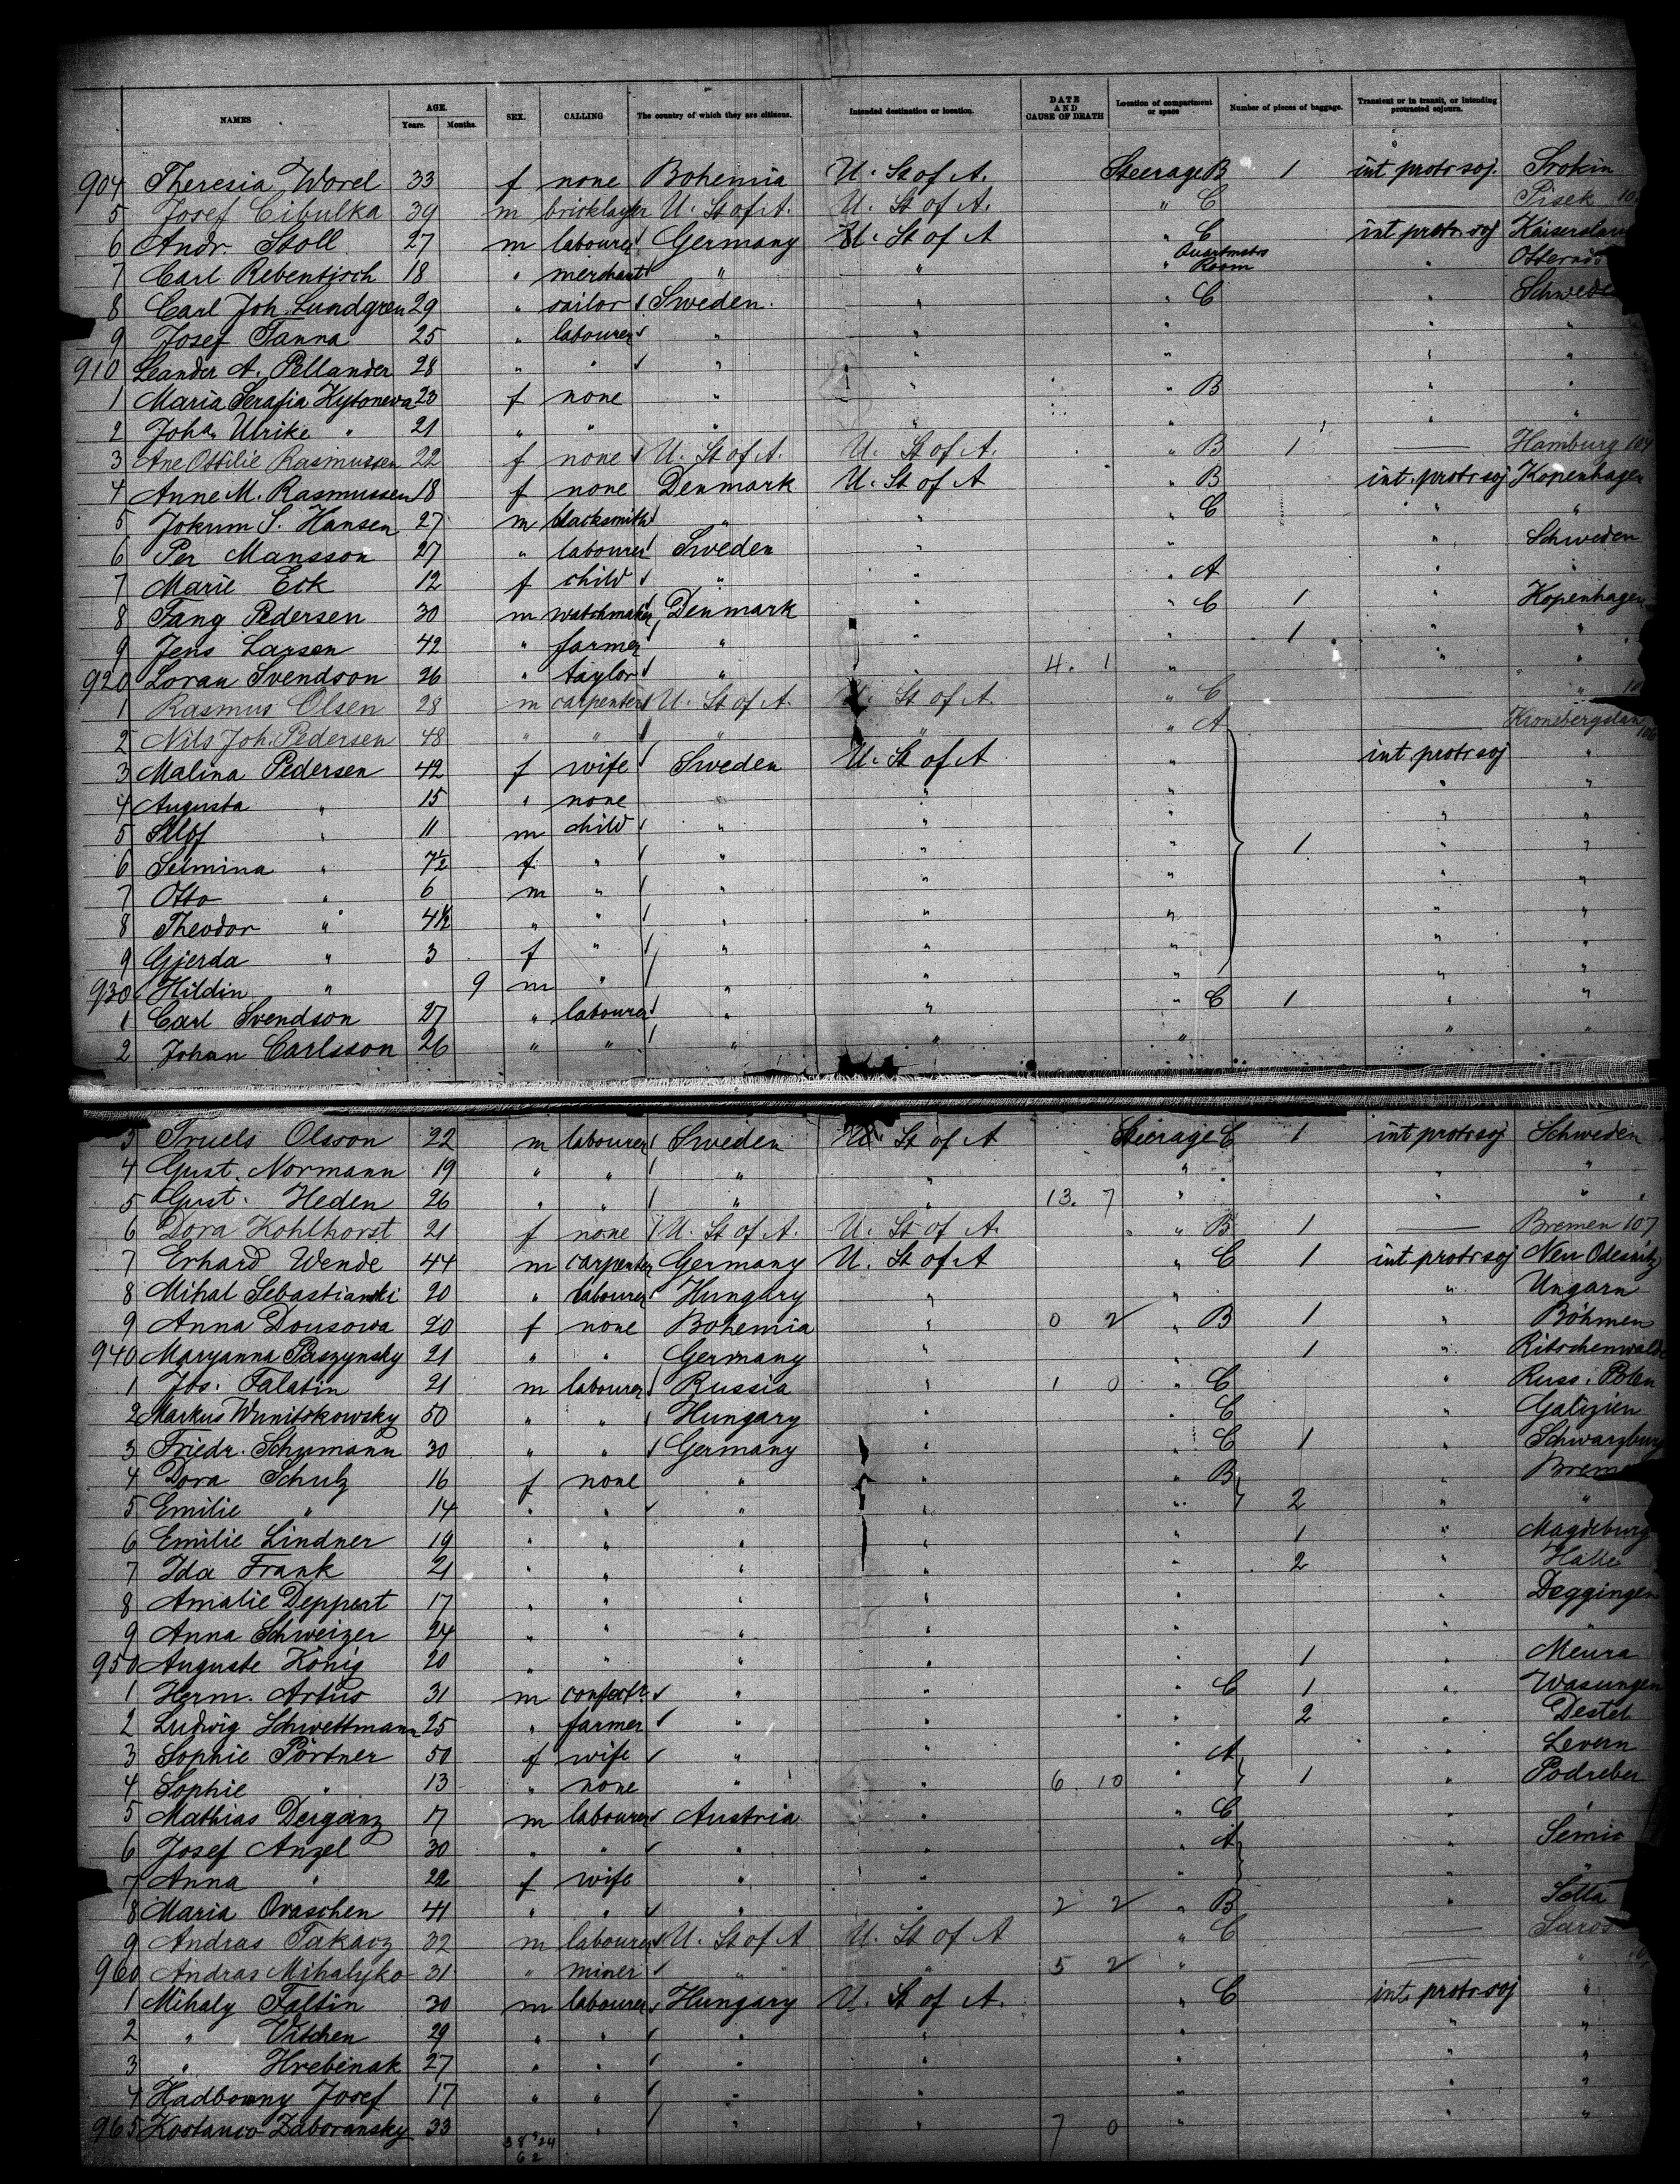 NAMES AGE. Years. Months. SEX. CALLING The country of which they are citizens. Intended destination or location. DATE AND CAUSE OF DEATH Location of compartment or space Number of pieces of baggage. Transient or in transit, or intending protracted sojourn.
904 Theresia Worel 33 f none Bohemia U. St of A. Steerage B 1 int protr soj.
5 Josef Cibulka 39 m bricklayer U. St of A. U. St of A. " C — Pisek
6 Andr. Stoll 27 m labourer Germany U. St of A " C int protr soj
7 Carl Rebentisch 18 " merchant " " " Quartmstrs Room "
8 Carl Joh. Lundgren 29 " sailor Sweden. " " C "
9 Josef Tanna 25 " labourer " " " " "
910 Leander A. Pellander 28 " " " " " " "
1 Maria Serafia Kytonewa 23 f none " " " B " "
2 Joha Ulrike " 21 " " " " " " "
3 Ane Ottilie Rasmussen 22 f none U. St of A. U. St of A. " B 1 — Hamburg 104
4 Anne M. Rasmussen 18 f none Denmark U. St of A " B int. protr soj Kopenhagen
5 Jokum S. Hansen 27 m blacksmith " " " C " "
6 Per Mansson 27 " labourer Sweden " " " Schweden
7 Marie Eck 12 f child " " " A " "
8 Fang Pedersen 30 m watchmaker Denmark " " C 1 " Kopenhagen
9 Jens Larsen 42 " farmer " " " 1 " "
920 Loran Svendson 26 " taylor " " 4. 1 " " "
1 Rasmus Olsen 28 m carpenter U. St of A. U. St of A. " C "
2 Nils Joh. Pedersen 48 " " " " " A —
3 Malina Pedersen 42 f wife Sweden U. St of A " int protr soj "
4 Augusta " 15 " none " " " " "
5 " 11 m child " " " " "
6 Selmina " 7½ f " " " " 1 " "
7 Otto " 6 m " " " " " "
8 Theodor " 4½ " " " " " " "
9 Gjerda " 3 f " " " " " "
930 Hildin " 9 m " " " " " "
1 Carl Svendson 27 " labourer " " " C 1 " "
2 Johan Carlsson 26 " " " " " " "
3 Truels Olsson 22 m labourer Sweden U. St of A Steerage C 1 int protr soj Schweden
4 Gust. Normann 19 " " " " " " "
5 Gust. Heden 26 " " " " 13. 7 " " "
6 Dora Kohlhorst 21 f none U. St of A. U. St of A. " B 1 — Bremen 107
7 Erhard Wende 44 m carpenter Germany U. St of A " C 1 int protr soj Neu
8 Mihal Sebastianski 20 " labourer Hungary " " " Ungarn
9 Anna Dousowa 20 f none Bohemia " 0 2 " B 1 " Böhmen
940 Maryanna Paszynsky 21 " " Germany " " 1 " Ritschenwalde
1 Jos. Falatin 21 m labourer Russia " 1 0 " C " Russ. Polen
2 Markus Wunitskowsky 50 " " Hungary " " C " Galizien
3 Friedr. Schumann 30 " " Germany " " C 1 " Schwarzburg
4 Dora Schulz 16 f none " " " B "
5 Emilie " 14 " " " " " 2 " "
6 Emilie Lindner 19 " " " " " 1 " Magdeburg
7 Ida Frank 21 " " " " " 2 " Halle
8 Amalie Deppert 17 " " " " " " Deggingen
9 Anna Schweizer 24 " " " " " " "
950 Auguste König 20 " " " " " 1 " Meura
1 Herm. Artus 31 m confectr. " " " C 1 " Wasungen
2 Ludwig Schwettmann 25 " farmer " " " 2 " Destel
3 Sophie Pörtner 50 f wife " " " A " Levern
4 Sophie " 13 " none " " 6. 10 " 1 " Podreber
5 Mathias Derganz 17 m labourer Austria " " C " "
6 Josef Anzel 30 " " " " " A " Semic
7 Anna " 22 f wife " " " " "
8 Maria Oraschen 41 " " " " 2 2 " B "
9 Andras Takacz 32 m labourer U. St of A U. St of A " C — Saros
960 Andras Mihalyko 31 " miner " " 5 2 " — "
1 Mihaly Faltin 30 m labourer Hungary U. St of A. " C int protr soj "
2 " Vitchen 29 " " " " " " "
3 " Hrebenak 27 " " " " " " "
4 Hadbovny Josef 17 " " " " " " "
965 Zaboransky 33 " " " 7 0 " " "
38 24
62